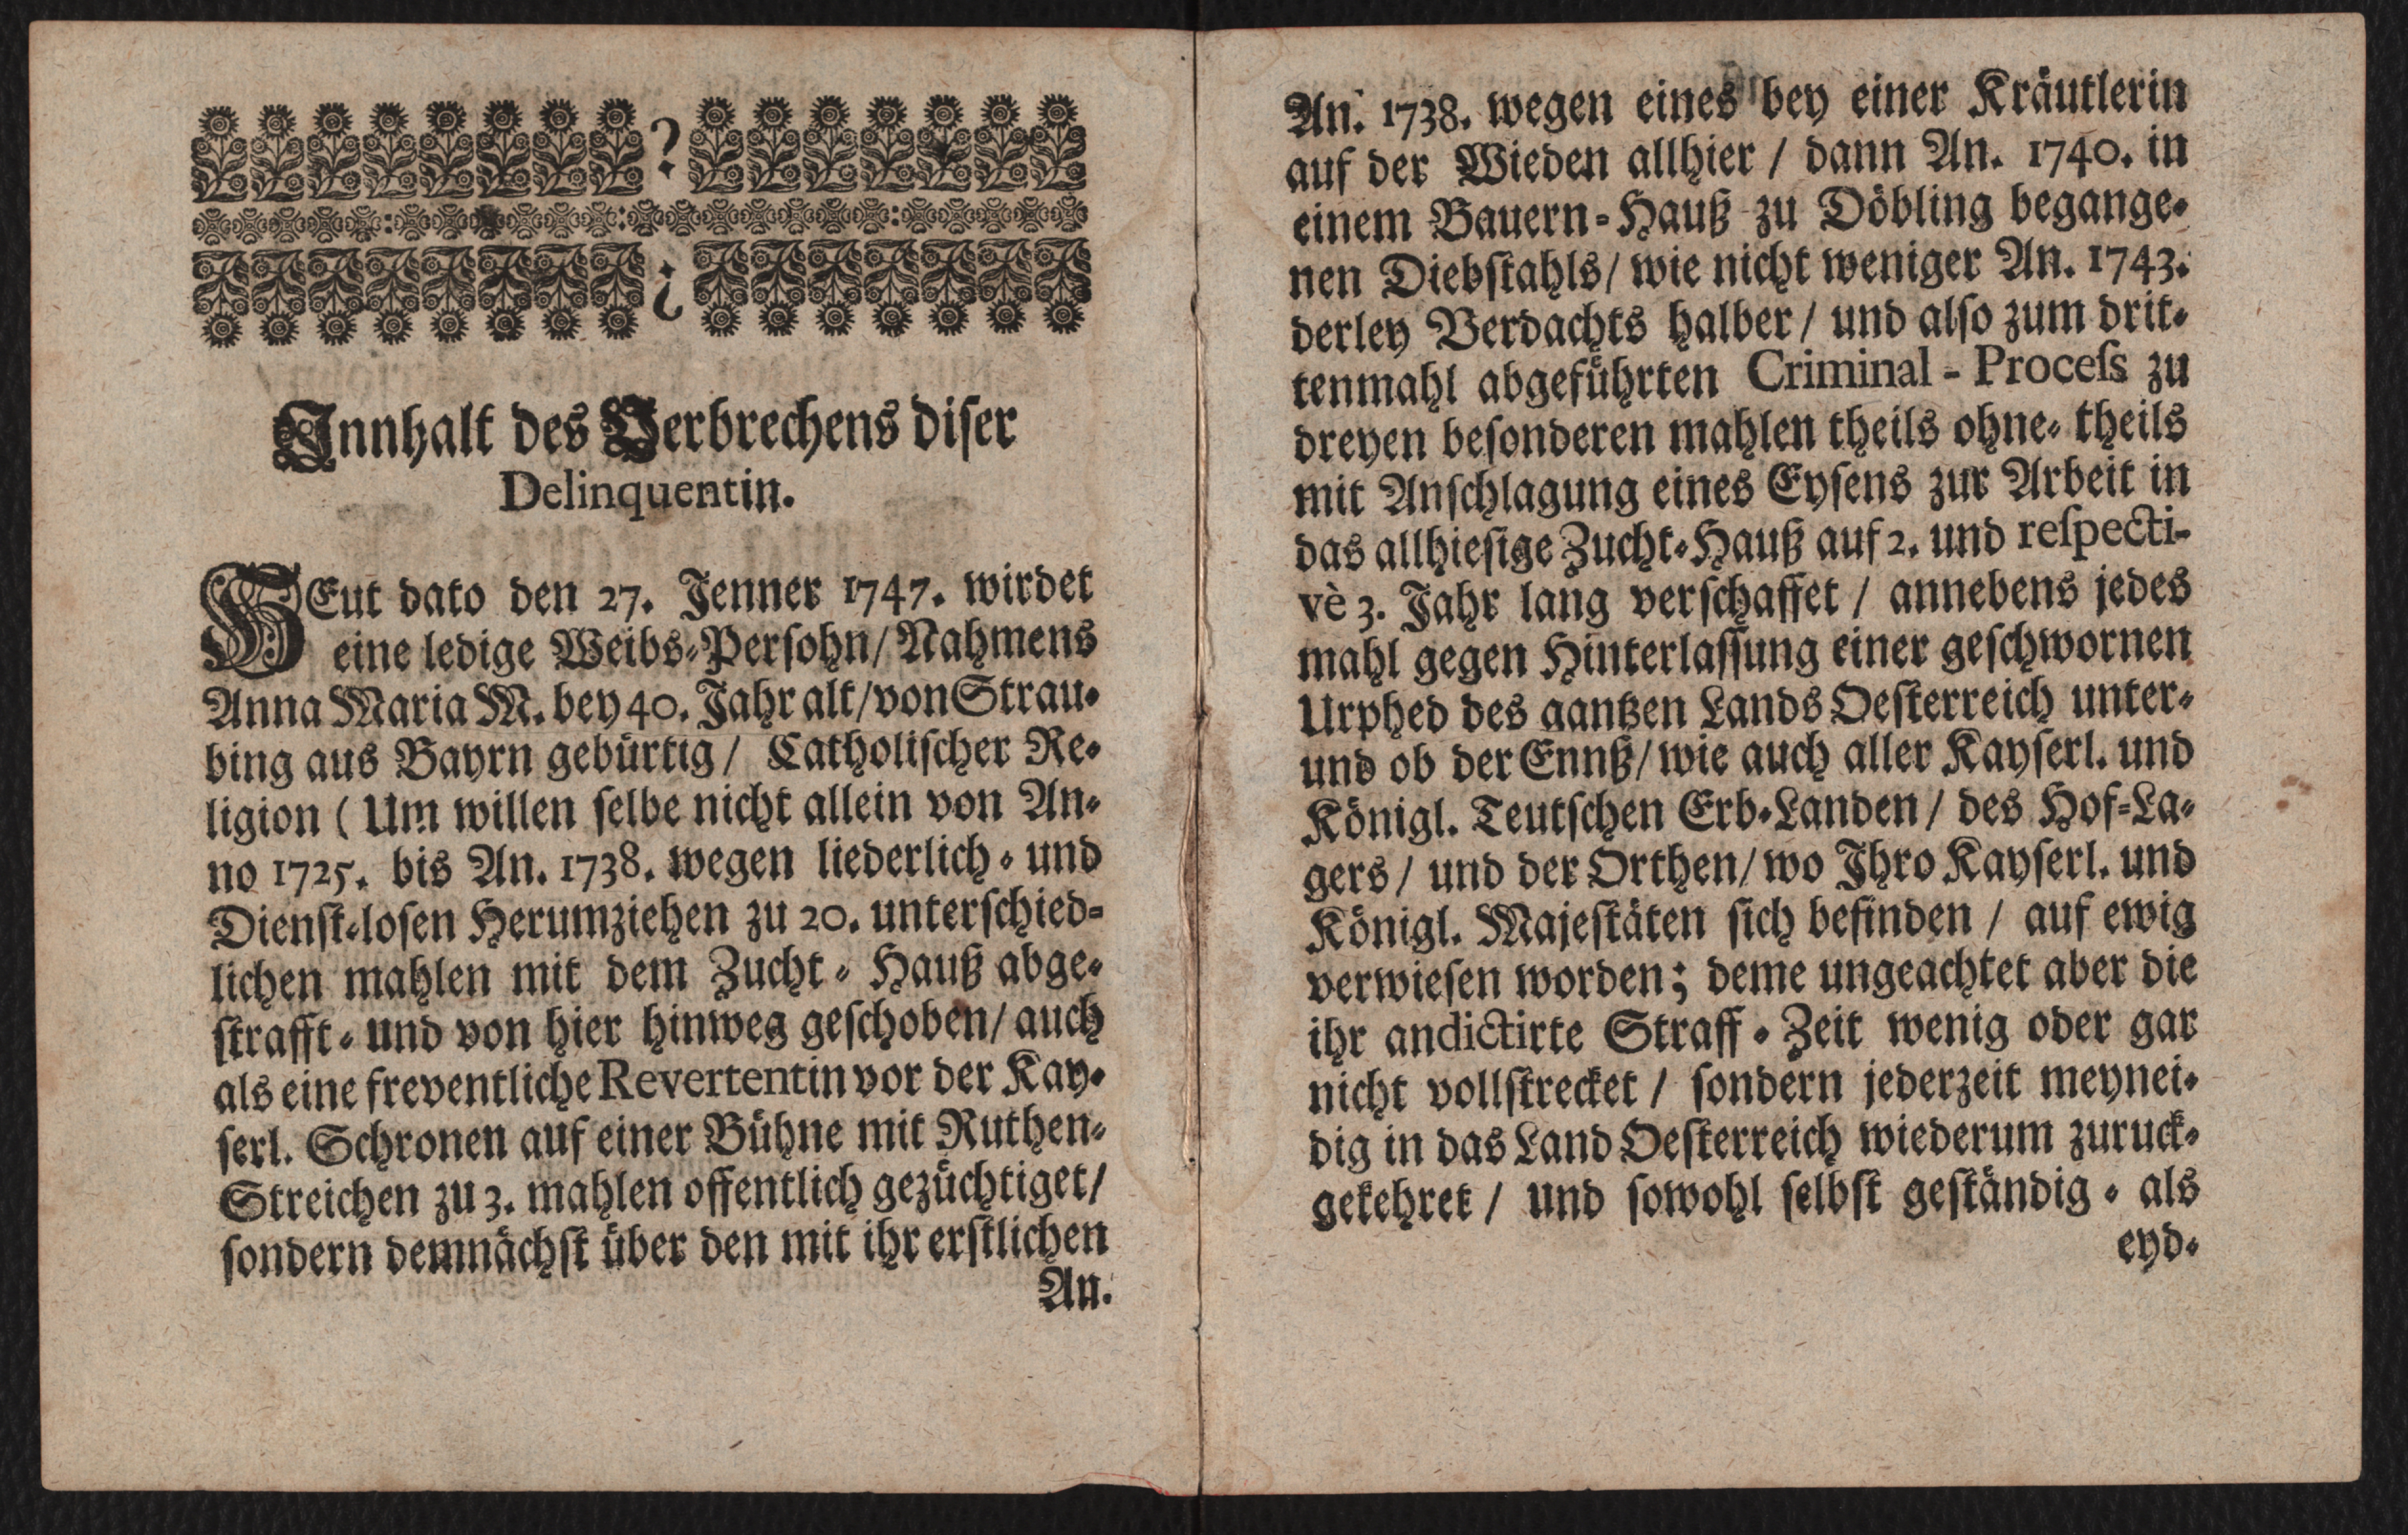 Innhalt des Verbrechens diser
Delinquentin.
HEut dato den 27. Jenner 1747. wirdet
eine ledige Weibs-Persohn/ Nahmens
Anna Maria M. bey 40. Jahr alt/ von Strau-
bing aus Bayrn gebürtig/ Catholischer Re-
ligion ( Um willen selbe nicht allein von An-
no 1725. bis An. 1738. wegen liederlich- und
Dienst-losen Herumziehen zu 20. unterschied-
lichen mahlen mit dem Zucht-Hauß abge-
strafft- und von hier hinweg geschoben/ auch
als eine freventliche Revertentin vor der Kay-
serl. Schronen auf einer Bühne mit Ruthen-
Streichen zu 3. mahlen offentlich gezüchtiget/
sondern demnächst über den mit ihr erstlichen
An.
An. 1738. wegen eines bey einer Kräutlerin
auf der Wieden allhier / dann An. 1740. in
einem Bauern-Hauß zu Döbling begange-
nen Diebstahls/ wie nicht weniger An. 1743.
derley Verdachts halber/ und also zum drit-
tenmahl abgeführten Criminal-Proceſs zu
dreyen besonderen mahlen theils ohne- theils
mit Anschlagung eines Eysens zur Arbeit in
das allhiesige Zucht-Hauß auf 2. und reſpecti-
vè 3. Jahr lang verschaffet / annebens jedes
mahl gegen Hinterlassung einer geschwornen
Urphed des gantzen Lands Oesterreich unter-
und ob der Ennß/ wie auch aller Kayserl. und
Königl. Teutschen Erb-Landen/ des Hof-La-
gers/ und der Orthen/ wo Ihro Kayserl. und
Königl. Majestäten sich befinden / auf ewig
verwiesen worden; deme ungeachtet aber die
ihr andictirte Straff-Zeit wenig oder gar
nicht vollstrecket / sondern jederzeit meynei-
dig in das Land Oesterreich wiederum zuruck-
gekehret / und sowohl selbst geständig- als
eyd-